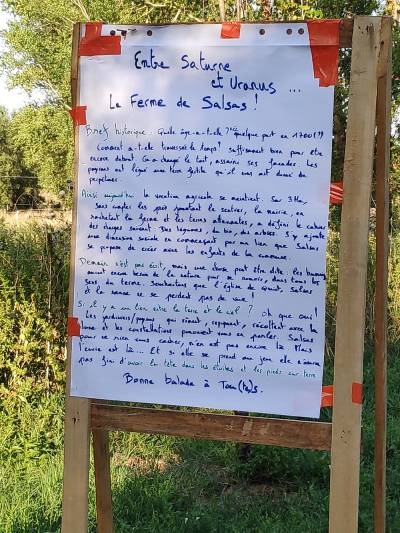 Entre Saturne
et Uranus ...
La Ferme de Salsas !
Bref historique : Quelle âge a-t-elle ? Née quelque part en 1700 (?)
Comment a-t-elle traversé le temps ? suffisamment bien pour être
encore debout. On a changé le toit, assaini ses façades. Les
paysans ont légué une terre fertile qu'ils ont donc du
perpétuer.
Ainsi aujourd'hui la vocation agricole se maintient. Sur 3 Ha,
sans compter les prés jouxtant le sentier, la mairie, en
rachetant la ferme et les terres attenantes, a défini le cahier
des charges suivant : Des légumes, du bio, des arbres. S'y ajoute
une dimension sociale en commençant par un lien que Salsas
se propose de créer avec les enfants de la commune.
Demain n'est pas écrit, mais une chose peut être dite : les humains
auront encore besoin de la nature pour se nourrir, dans tous les
sens du terme. Souhaitons que l'église de Vinat, Salsas
et la nature ne se perdent pas de vue !
Si, il y a un lien entre la terre et le ciel ? Oh que oui !
Les jardiniers/paysans qui sèment, repiquent, récoltent avec la
lune et les constellations pourraient vous en parler. Salsas
pour ne rien vous cacher, n'en est pas encore là. Mais
l'envie est là... Et si elle se prend au jeu elle n'aura
pas fini d'avoir la tête dans les étoiles et les pieds sur terre
Bonne balade à Tou(te)s.